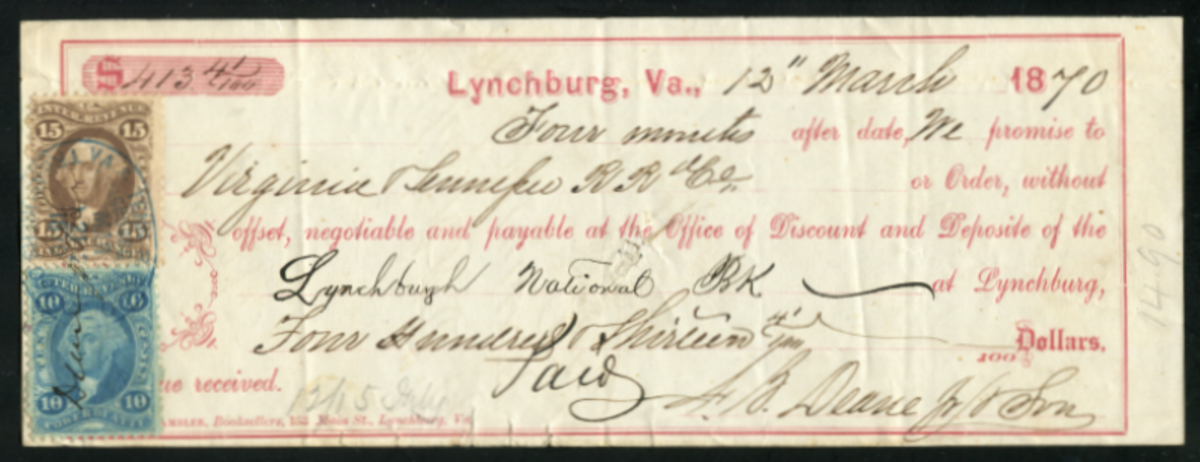 $413 41/100
Lynchburg, Va., 12" March 1870
Four months after date, We promise to
Virginia & Tennessee R R & Co. or Order, without
offset, negotiable and payable at the Office of Discount and Deposite of the
Lynchburgh National Bk at Lynchburg,
Four Hundred & Thirteen 41/100 100 Dollars.
ue received.
Paid
12/15 July
Deane Jr & Son
AMBLER, Booksellers, Main St., Lynchburg, Va
15 15
15 15
10
10 10
1490